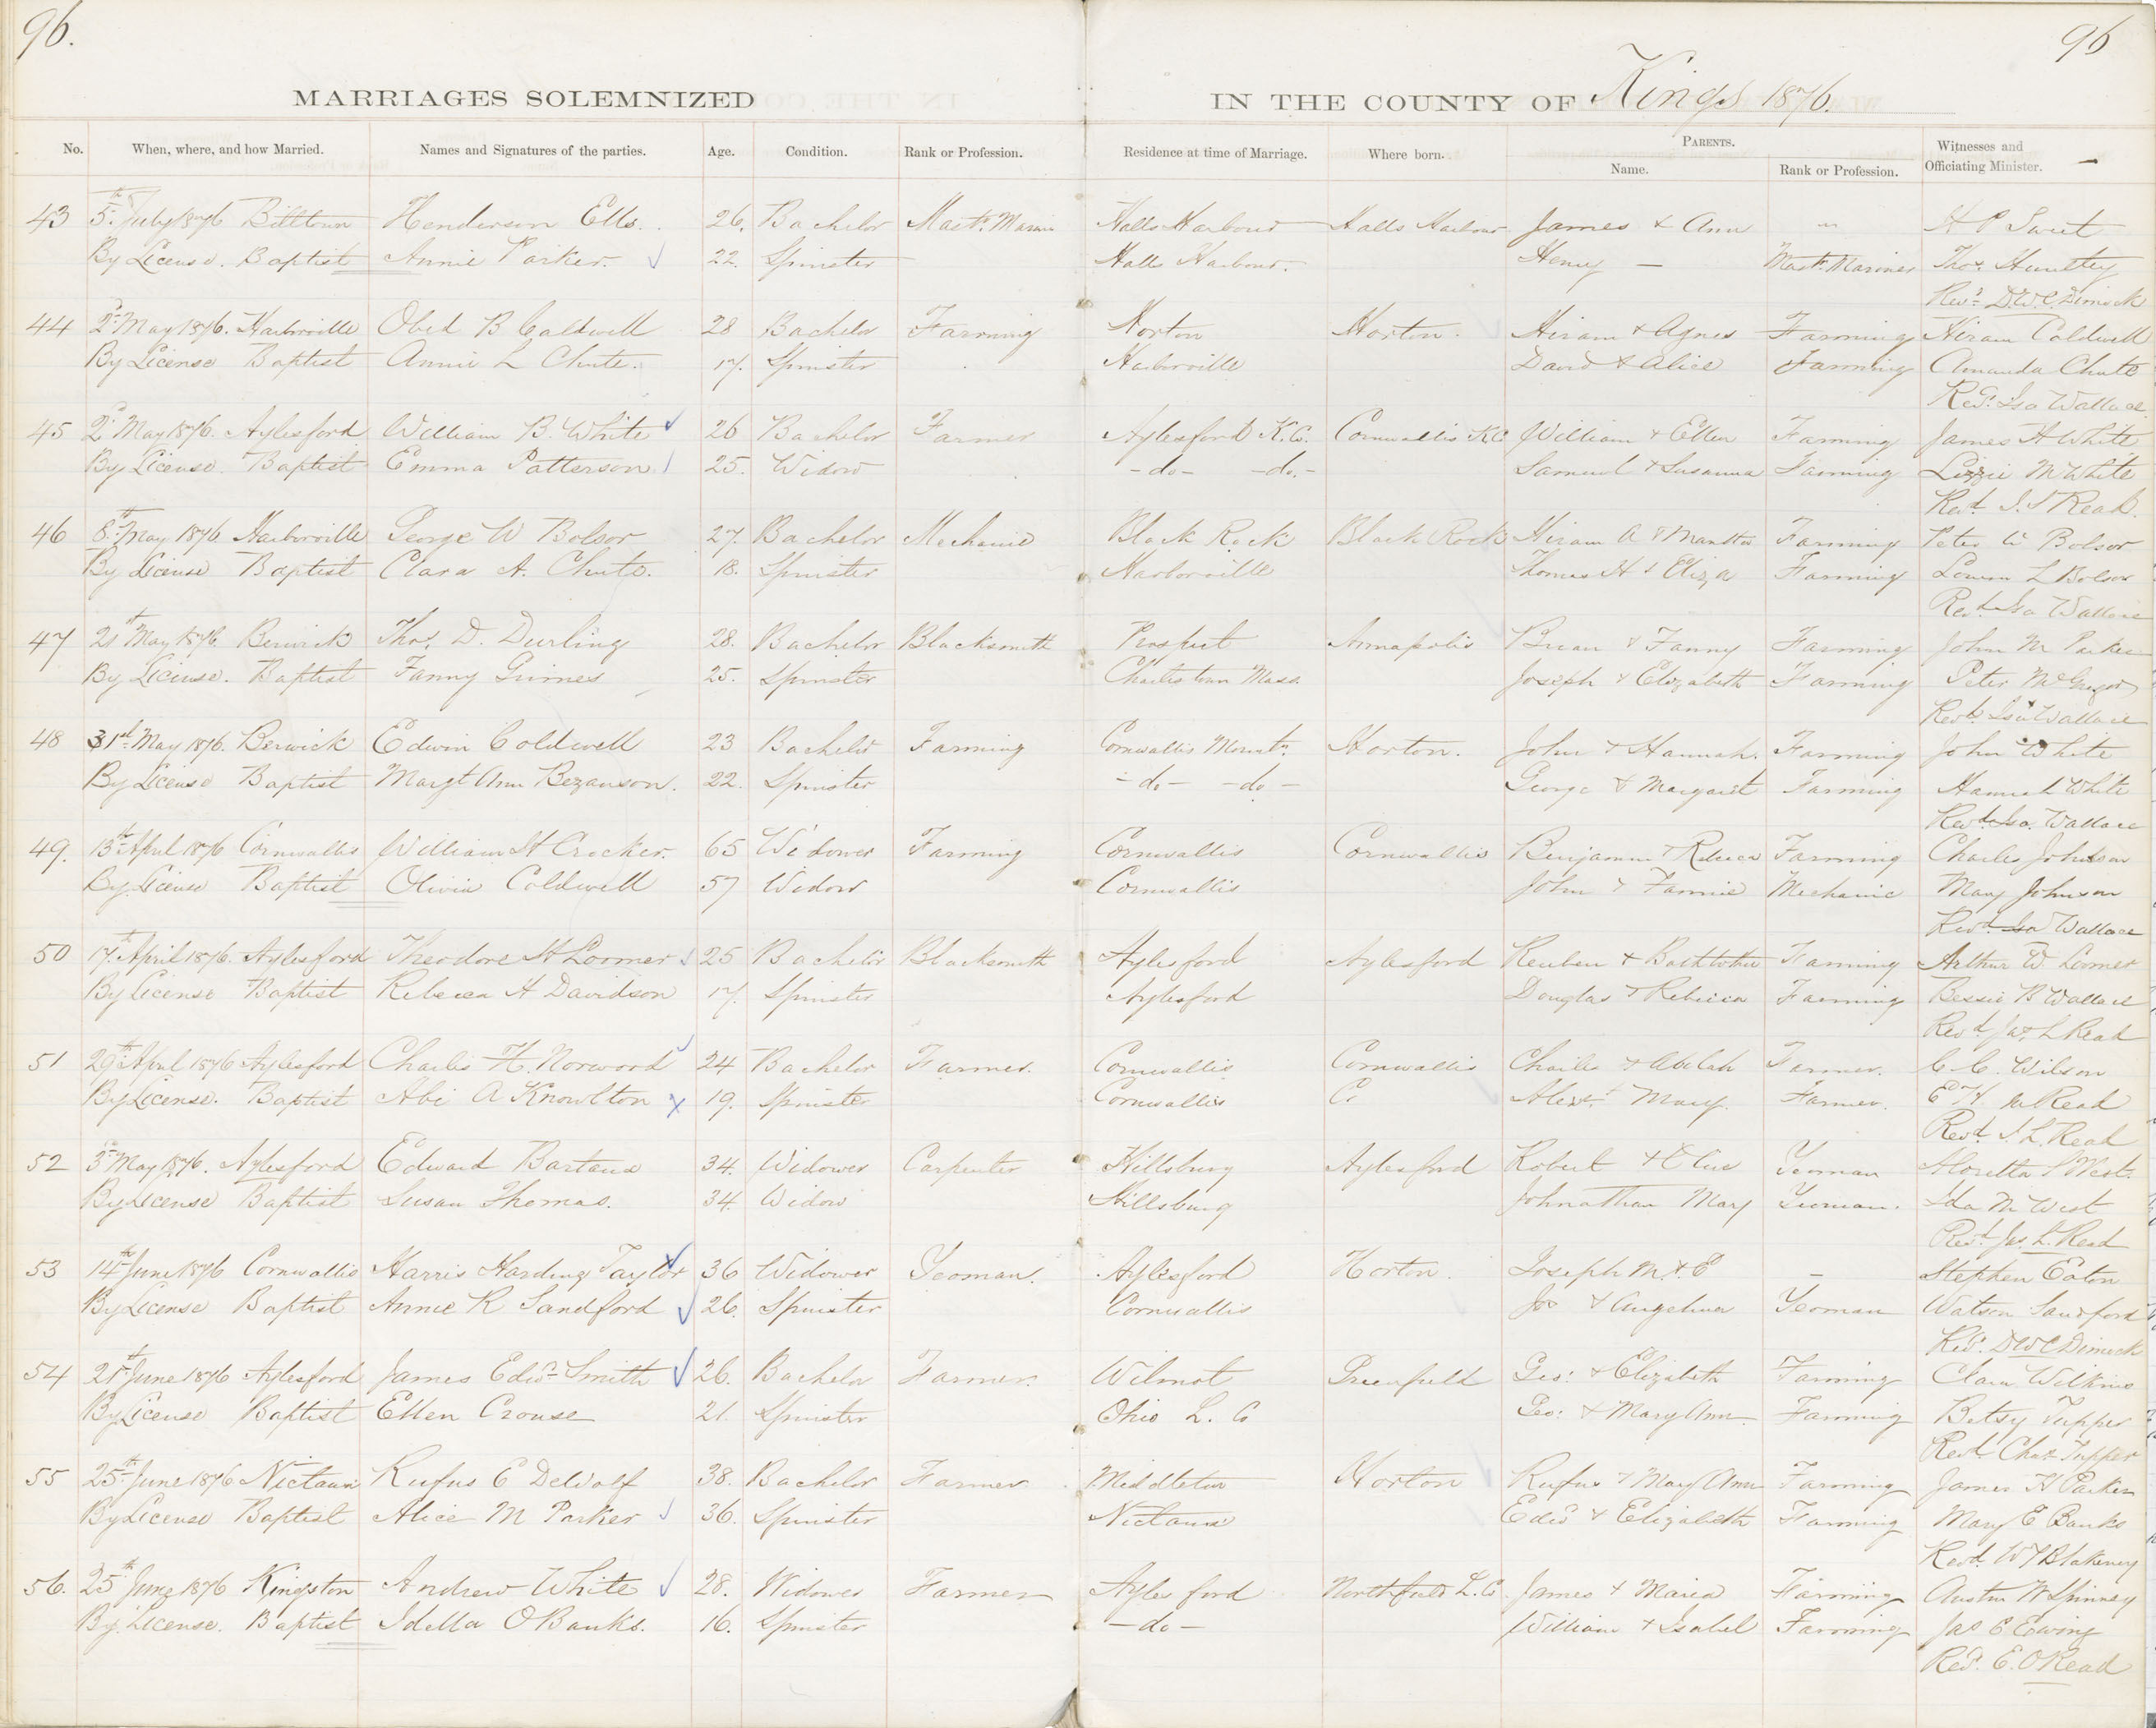 96.
96
MARRIAGES SOLEMNIZED IN THE COUNTY OF Kings 1876.
No. When, where, and how Married. Names and Signatures of the parties. Age. Condition. Rank or Profession. Residence at time of Marriage. Where born. PARENTS. Name. Rank or Profession. Witnesses and Officiating Minister.
43 5th July 1876 Billtown Henderson Ells. 26. Bachelor Mastr. Marin Halls Harbour Halls Harbour James & Ann " H P Sweet
By License. Baptist Annie Parker. 22. Spinster Halls Harbour. Henry — Mastr Mariner Thos. Huntley
Revd. D.W.C. Dimock
44 2d May 1876. Harborville Obed B Caldwell 28 Bachelor Farming Horton Horton. Hiram & Agnes Farming Hiram Coldwell
By License Baptist Annie L Chute. 17. Spinster Harborville David & Alice Farming Amanda Chute
Revd. Isa Wallace
45 2d May 1876. Aylesford William B. White 26 Bachelor Farmer Aylesford K.C. Cornwallis KC William & Ellen Farming James H White
By License. Baptist Emma Patterson. 25. Widow -do- -do.- Samuel & Susanna Farming Lizzie M White
Revd. J. Read.
46 8th May 1876. Harborville George W Bolsor 27. Bachelor Mechanic Black Rock Black Rock Hiram A & Farming Peter W Bolsor
By License Baptist Clara A. Chute. 18. Spinster Harborville Thomas H & Eliza Farming L Bolsor
Revd Isa Wallace
47 21st May 1876. Berwick Thos. D. Durling 28. Bachelor Blacksmith Prospect Annapolis Brian & Fanny Farming John M Parker
By License. Baptist Fanny Grimes 25. Spinster Charlestown Mass. Joseph & Elizabeth Farming Peter McGregor
Revd. Isa Wallace
48 31st May 1876. Berwick Edwin Coldwell 23 Bachelor Farming Cornwallis Mountn. Horton. John & Hannah. Farming John White
By License Baptist Margt Ann Bezanson. 22. Spinster -do- -do- George & Margaret Farming Hannah White
Revd. Isa. Wallace
49. 13th April 1876 Cornwallis William H Crocker. 65 Widower Farming Cornwallis Cornwallis Benjamin & Rebecca Farming Charles Johnson
By License Baptist Olivia Coldwell 57 Widow Cornwallis John & Fannie Mechanic Mary Johnson
Revd Isa Wallace
50 17th April 1876. Aylesford Theodore H Loomer 25 Bachelor Blacksmith Aylesford Aylesford Reuben & Farming Arthur W Loomer
By License Baptist Rebecca A Davidson 17. Spinster Aylesford Douglas & Rebecca Farming Bessie B Wallace
Revd Jas. L Read
51 29th April 1876 Aylesford Charles H. Norwood 24 Bachelor Farmer. Cornwallis Cornwallis Charles & Farmer. C. C. Wilson
By License. Baptist Abi A Knowlton 19. Spinster Cornwallis C. Alexr. Mary. Farmer. E H McRead
Revd. J. L. Read
52 3d May 1876. Aylesford Edward Bartaux 34. Widower Carpenter Hillsburg Aylesford Robert & Yeoman Aloretta S West.
By License Baptist Susan Thomas. 34. Widow Hillsburg Johnathan Mary Yeoman. Ida M West
Revd. Jas. L. Read
53 14th June 1876 Cornwallis Harris Harding Taylor 36 Widower Yeoman. Aylesford Horton. Joseph M. & E — Stephen Eaton
By License Baptist Annie R Sandford 26. Spinster Cornwallis Jos & Angelina Yeoman Watson Sandford
Revd. D W C Dimock
54 21st June 1876 Aylesford James Edwd. Smith 26. Bachelor Farmer. Wilmot Greenfield Geo: & Elizabeth Farming Clara Wilkins
By License Baptist Ellen Crouse 21. Spinster Ohio L. Co Geo: & Mary Ann Farming Betsy Tupper
Revd. Chas Tupper
55 25th June 1876 Nictaux Rufus E DeWolf 38. Bachelor Farmer Middleton Horton Rufus & Mary Ann Farming James H Parker
By License Baptist Alice M Parker 36. Spinster Nictaux Edwd & Elizabeth Farming Mary E Banks
Revd. W J Blakeney
56. 25th June 1876 Kingston Andrew White 28. Widower Farmer Aylesford Northfield L. Co. James & Maria Farming Austin W Spinney
By License. Baptist Idella O Banks. 16. Spinster -do- William & Isabel Farming Jas E Ewing
Revd. E. O Read